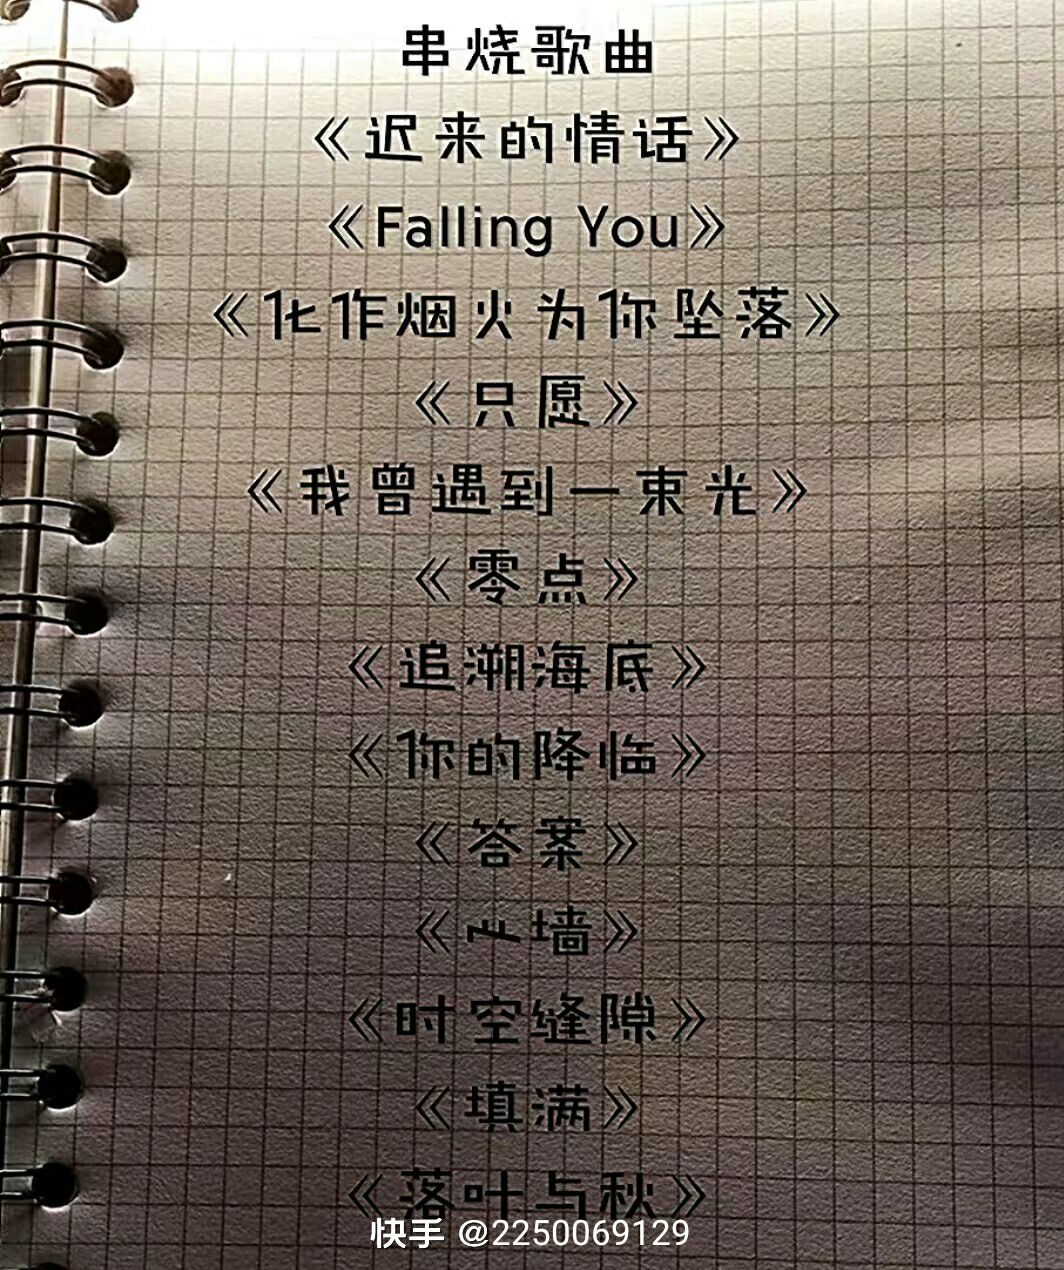 串烧歌曲
《迟来的情话》
《Falling You》
《化作烟火为你坠落》
《只愿》
《我曾遇到一束光》
《零点》
《追溯海底》
《你的降临》
《答案》
《心墙》
《时空缝隙》
《填满》
《落叶与秋》
快手 @2250069129